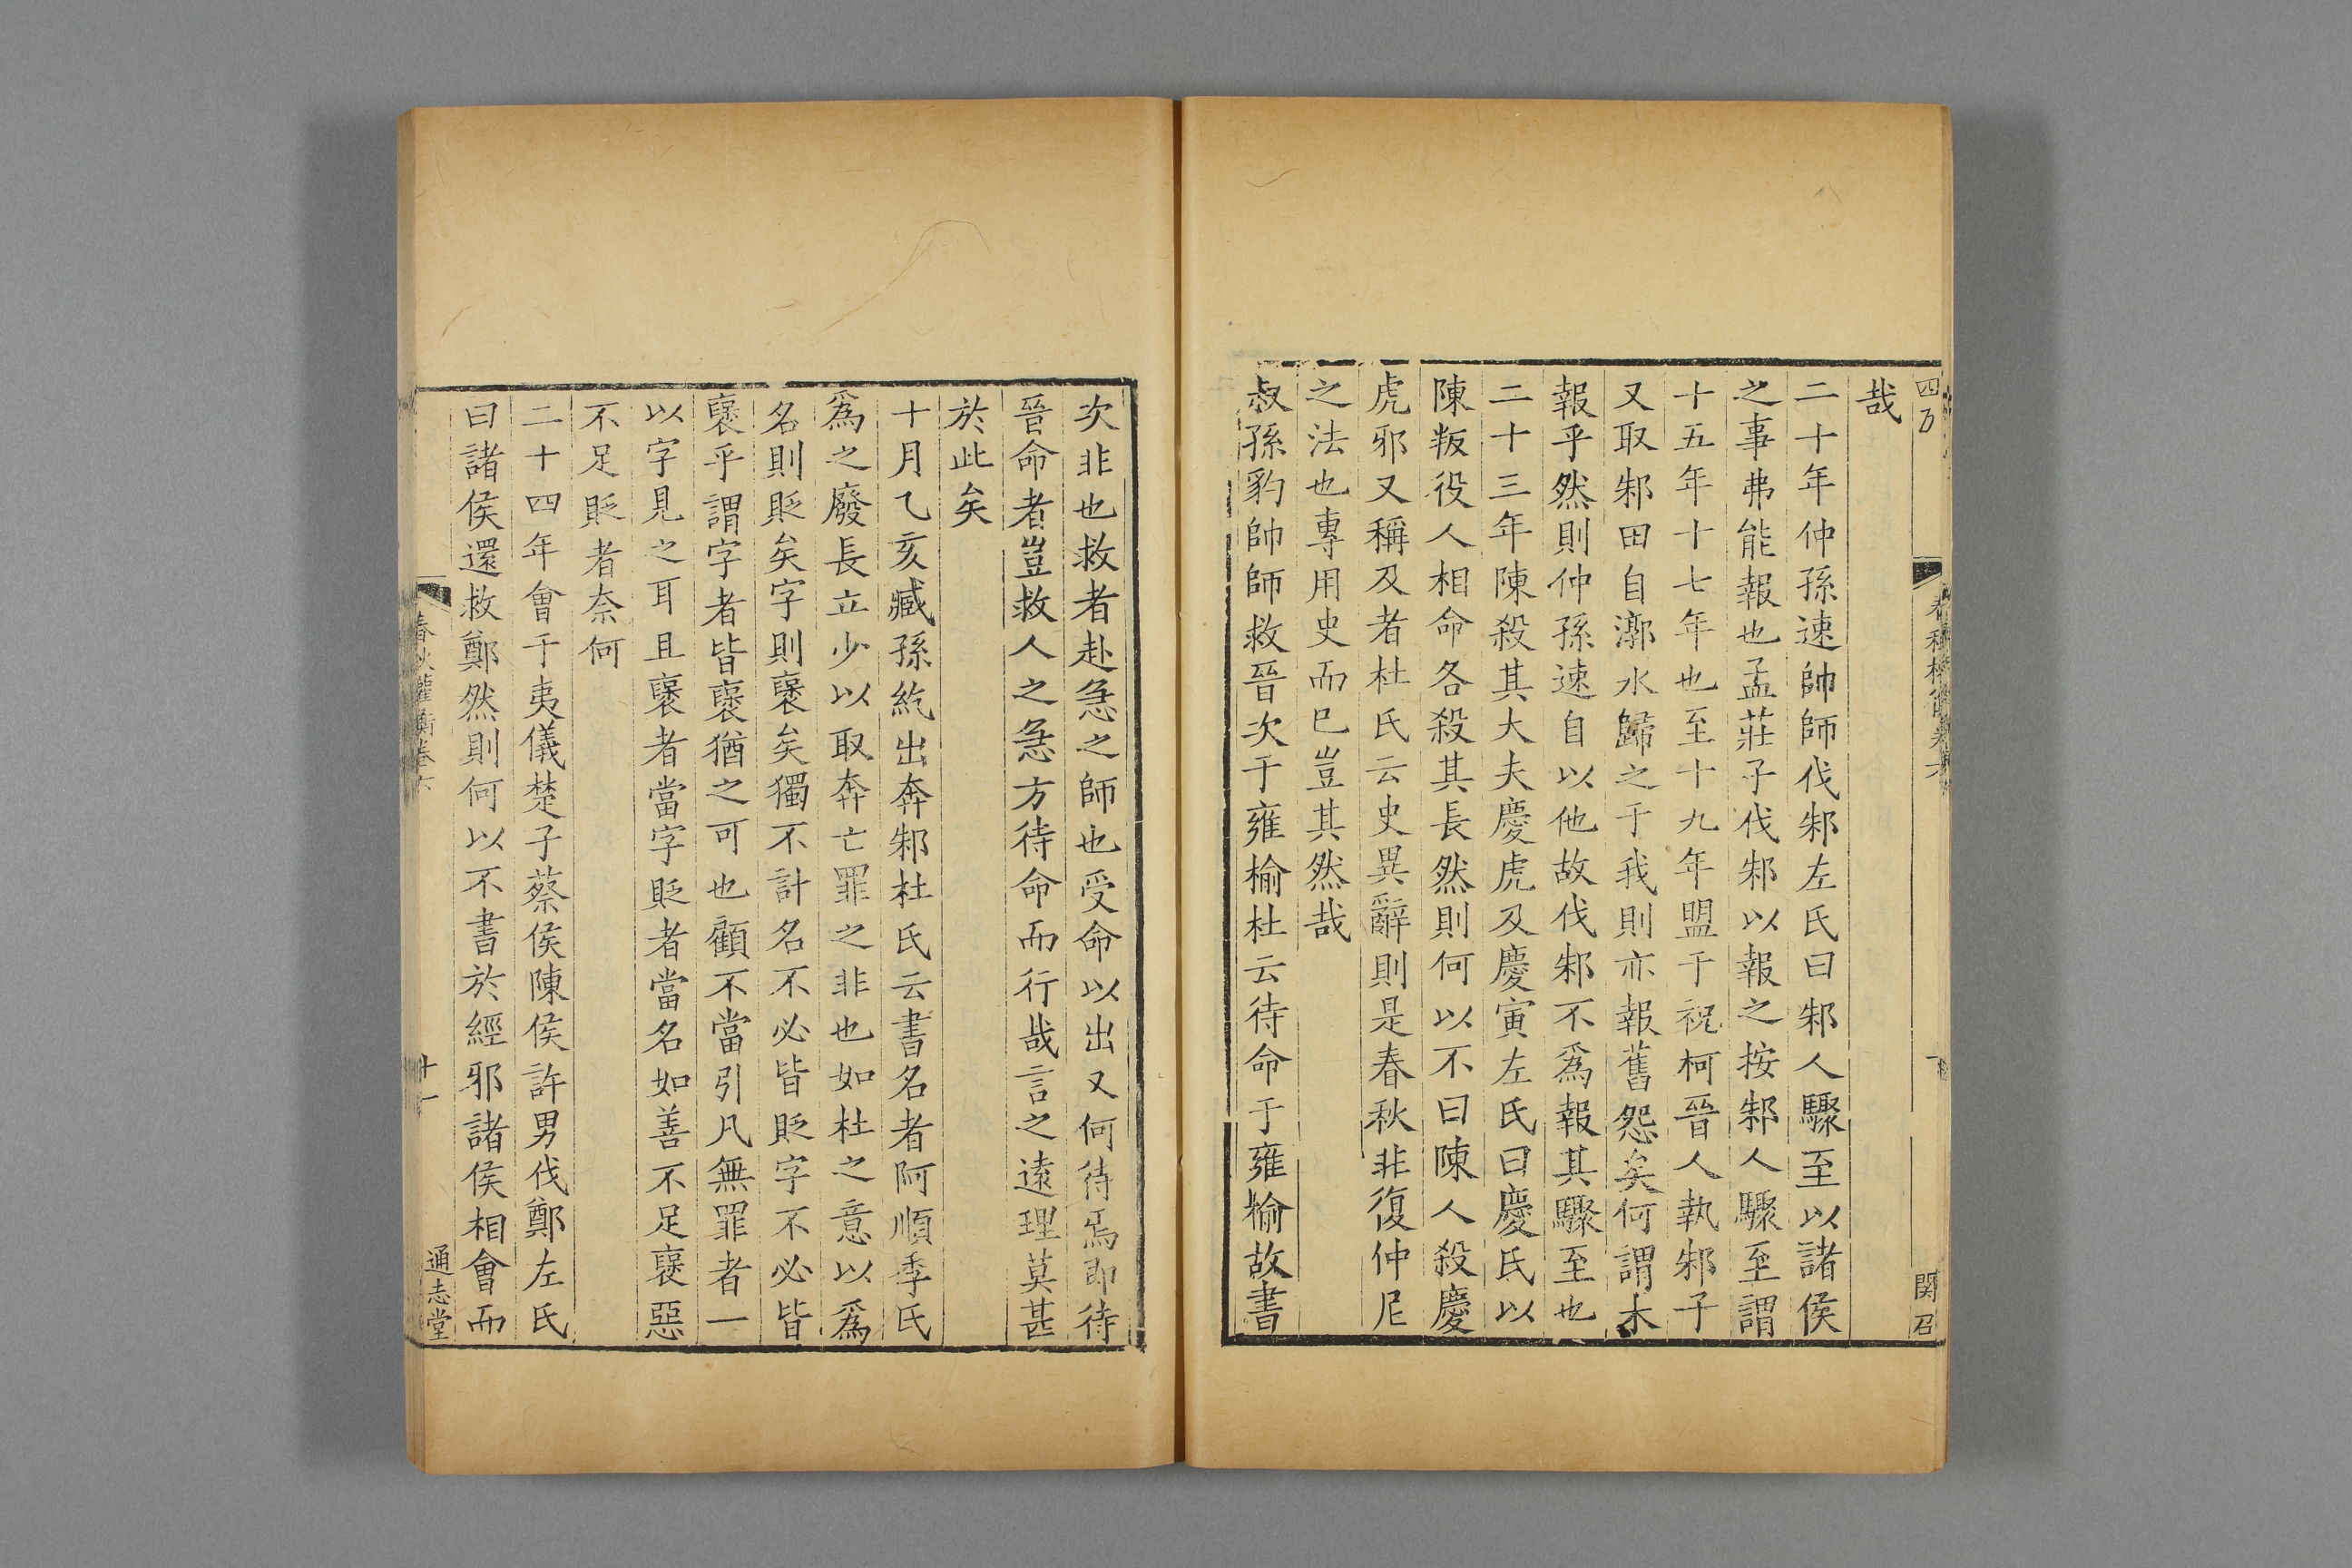 哉
二十年仲孫速帥師伐邾左氏曰邾人驟至以諸侯
之事弗能報也孟莊子伐邾以報之按邾人驟至謂
十五年十七年也至十九年盟于祝柯晉人執邾子
又取邾田自漷水歸之于我則亦報舊怨矣何謂未
報乎然則仲孫速自以他故伐邾不爲報其驟至也
二十三年陳殺其大夫慶虎及慶寅左氏曰慶氏以
陳叛役人相命各殺其長然則何以不曰陳人殺慶
虎邪又稱及者杜氏云史異辭則是春秋非復仲尼
之法也專用史而已豈其然哉
叔孫豹帥師救晉次于雍榆杜云待命于雍榆故書
次非也救者赴急之師也受命以出又何待焉即待
晉命者豈救人之急方待命而行哉言之遠理莫甚
於此矣
十月乙亥臧孫紇出奔邾杜氏云書名者阿順季氏
爲之廢長立少以取奔亡罪之非也如杜之意以爲
名則貶矣字則襃矣獨不計名不必皆貶字不必皆
襃乎謂字者皆襃猶之可也顧不當引凡無罪者一
以字見之耳且襃者當字貶者當名如善不足襃惡
不足貶者奈何
二十四年會于夷儀楚子蔡侯陳侯許男伐鄭左氏
曰諸侯還救鄭然則何以不書於經邪諸侯相會而
春秋權衡卷六
十一
通志堂